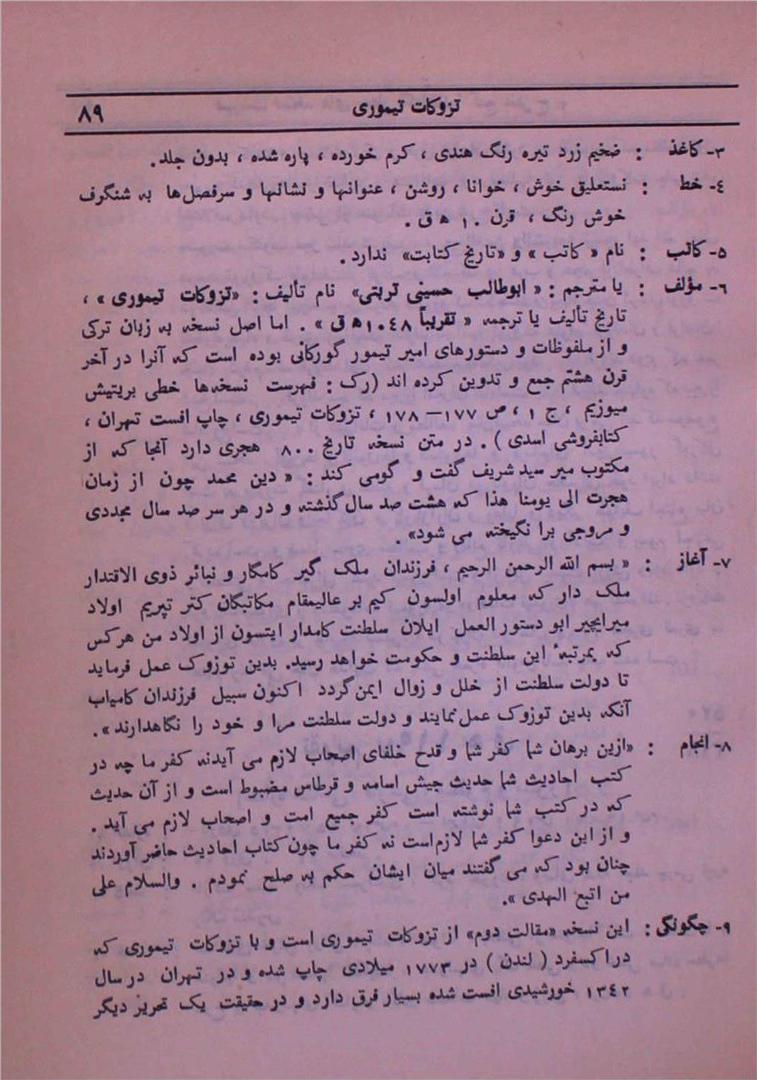 تزوکات تیموری
۸۹
۳- کاغذ : ضخیم زرد تیره رنگ هندی ، کرم خورده ، پاره شده ، بدون جلد .
۴- خط : نستعلیق خوش ، خوانا ، روشن ، عنوانها و نشانها و سرفصل‌ها به شنگرف
خوش رنگ ، قرن ۱۰ ه ق .
۵- کاتب : نام « کاتب » و «تاریخ کتابت» ندارد .
۶- مؤلف : یا مترجم : « ابوطالب حسینی تربتی» نام تألیف : «تزوکات تیموری» ،
تاریخ تألیف یا ترجمه « تقریباً ۱۰۴۸ ه ق » . اما اصل نسخه به زبان ترکی
و از ملفوظات و دستورهای امیر تیمور گورکانی بوده است که آنرا در آخر
قرن هشتم جمع و تدوین کرده اند (رک : فهرست نسخه‌ها خطی بریتیش
میوزیم ، ج ۱ ، ص ۱۷۷ – ۱۷۸ ، تزوکات تیموری ، چاپ افست تهران ،
کتابفروشی اسدی ) . در متن نسخه تاریخ ۸۰۰ هجری دارد آنجا که از
مکتوب میر سید شریف گفت و گومی کند : « دین محمد چون از زمان
هجرت الی یومنا هذا که هشت صد سال گذشته و در هر سر صد سال مجددی
و مروجی برا نگیخته می شود» .
۷- آغاز : « بسم الله الرحمن الرحیم ، فرزندان ملک گیر کامگار و نبائر ذوی الاقتدار
ملک دار که معلوم اولسون کیم بر عالیمقام مکاتبگان کتر تپریم اولاد
میرایچیر ابو دستور العمل ایلان سلطنت کامدار ایتسون از اولاد من هرکس
که بمرتبهٔ این سلطنت و حکومت خواهد رسید. بدین توزوک عمل فرماید
تا دولت سلطنت از خلل و زوال ایمن گردد اکنون سبیل فرزندان کامیاب
آنکه بدین توزوک عمل نمایند و دولت سلطنت مرا و خود را نگاهدارند» .
۸- انجام : «ازین برهان شما کفر شما و قدح خلفای اصحاب لازم می آیدنه کفر ما چه در
کتب احادیث شما حدیث جیش اسامه و قرطاس مضبوط است و از آن حدیث
که در کتب شما نوشته است کفر جمیع امت و اصحاب لازم می آید .
و از این دعوا کفر شما لازم است نه کفر ما چون کتاب احادیث حاضر آوردند
چنان بود که می گفتند میان ایشان حکم به صلح نمودم . والسلام علی
من اتبع الهدی ».
۹- چگونگی : این نسخه «مقالت دوم» از تزوکات تیموری است و با تزوکات تیموری که
در اکسفرد ( لندن ) در ۱۷۷۳ میلادی چاپ شده و در تهران در سال
۱۳۴۲ خورشیدی افست شده بسیار فرق دارد و در حقیقت یک تحریر دیگر